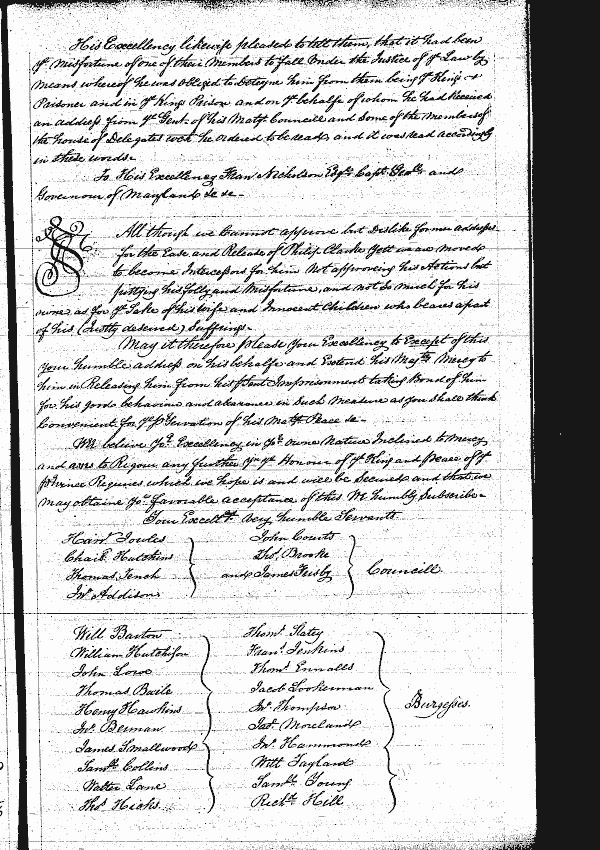 His Excellency likewise pleased to tell them, that it had been
yᵉ Misfortune of one of their Members to fall Under the Justice of yᵉ Law by
means whereof he was Obliged to Deteyne him from them being yᵉ Kings
Prisoner and in yᵉ Kings Prison and on yᵉ behalfe of whom he had Received
an address from yᵉ Gentⁿ of his Matys Councill and Some of the Members of
the house of Delegates wch he ordered to be read, and it was read accordingly
in these words.
To His Excellency Fran Nicholson Esqr Capt Genll and
Governour of Maryland &c &c
All though we Cannot approve but Dislike former addresses
for the Ease and Release of Philip Clarke Yett we are moved
to become Intercessors for him Not approveing his Actions but
pittying his folly and Misfortune, and not So much for his
owne as for yᵉ Sake of his wife and Innocent Children who beares apart
of his (Justly deserved) Suffering.
May it therefore please Your Excellency to Except of this
Your humble address on his behalfe and Extend his Matys Mercy to
him in Releasing him from his Imprisonment takeing Bond of him
for his good behaviour and abearance in Such Measure as you Shall think
Convenient for yᵉ pServation of his Matys Peace &c
We beleive Yor Excellency in Yor owne Nature Inclined to Mercy
and avers to Rigour any further yn yᵉ Honour of yᵉ King and Peace of yᵉ
pvince Requires which we hope is and will be Secured and that we
may obtaine Yor favorable acceptance of this We humbly Subscribe
Your Excellcy Very humble Servants
Hen Jowles John Courts
Charl Hutchins Tho Brooke
Thomas Tench and James Frisby Councill
Jno Addison
Will Barton Thom Staley
William Hutchison Fran Jenkins
John Lowe Thom Ennalls
Thomas Baile Jacob Lookerman
Henry Hawkins Jno Thompson Burgesses.
Jno Beman Jat Moreland
James Smallwood Jno Hammond
Samll Collins Will Tayland
Walter Lane Samll Young
Tho Hicks Richd Hill